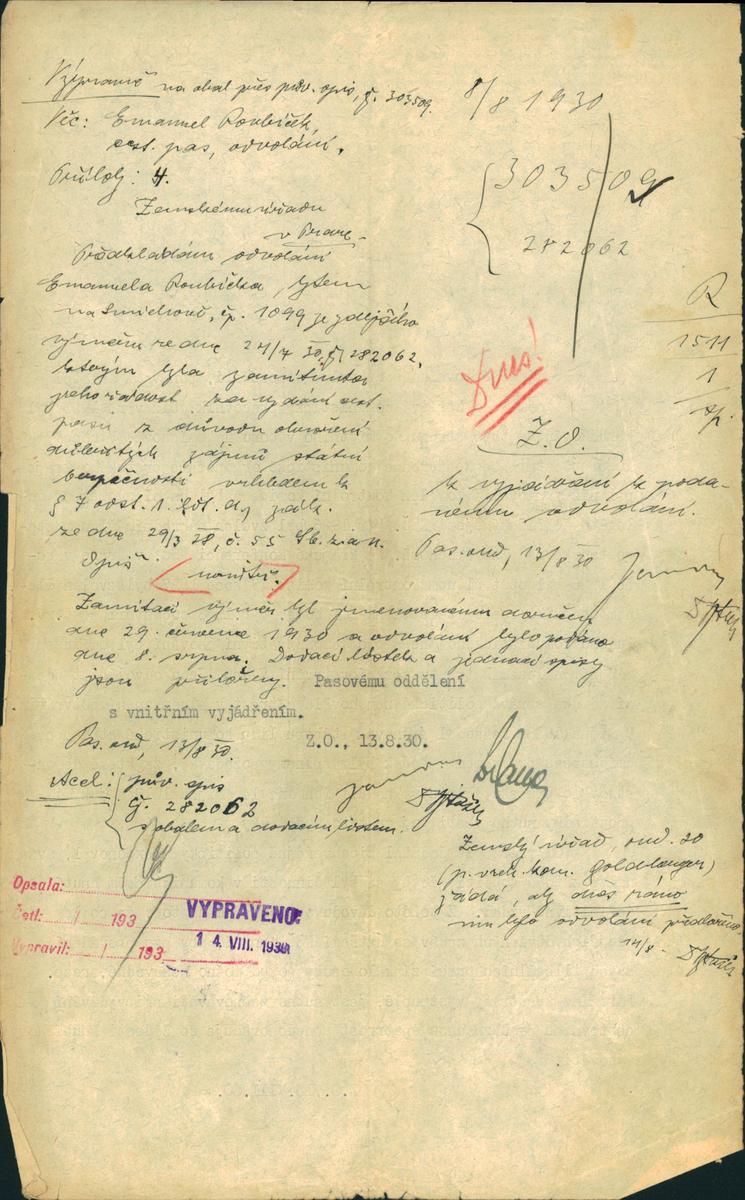 Výpravně na obal přes pův. opis, č. 303509.
Věc: Emanuel Roubíček,
cest. pas, odvolání.
Příloh: 4.
Zemskému úřadu
v Praze.
Předkládám odvolání
Emanuela Roubíčka, bytem
na Smíchově, čp. 1099 z zdejšího
výměru ze dne 24/7 30, čj 282062,
kterým byla zamítnuta
jeho žádost za vydání cest.
pasu z důvodu ohrožení
důležitých zájmů státní
bezpečnosti vzhledem k
§ 7 odst. 1. lit. d, zák.
ze dne 29/3 28, č. 55 Sb. z. a n.
Opis
Zamítací výměr byl jmenovanému doručen
dne 29. července 1930 a odvolání bylo podáno
dne 8. srpna. Dodací lístek a jednací spisy
jsou přiloženy. Pasovému oddělení
s vnitřním vyjádřením.
Pas. odd, 13/8 30.
Z.O., 13.8.30.
Acel: pův. spis
čj. 282062
s obalem a dodacím listem.
Opsala:
Četl: / 193
Vypravil: / 193
VYPRAVENO:
14. VIII. 1930
8/8 1930
303509
282062
Dnes!
R
1511
1
Z.O.
k vyjádření k poda-
nému odvolání.
Pas. odd, 13/8 30
Zemský úřad, odd. 20
(p. vrch. kom. Goldberger)
žádá, aby dnes ráno
mu bylo odvolání předloženo.
14/8.